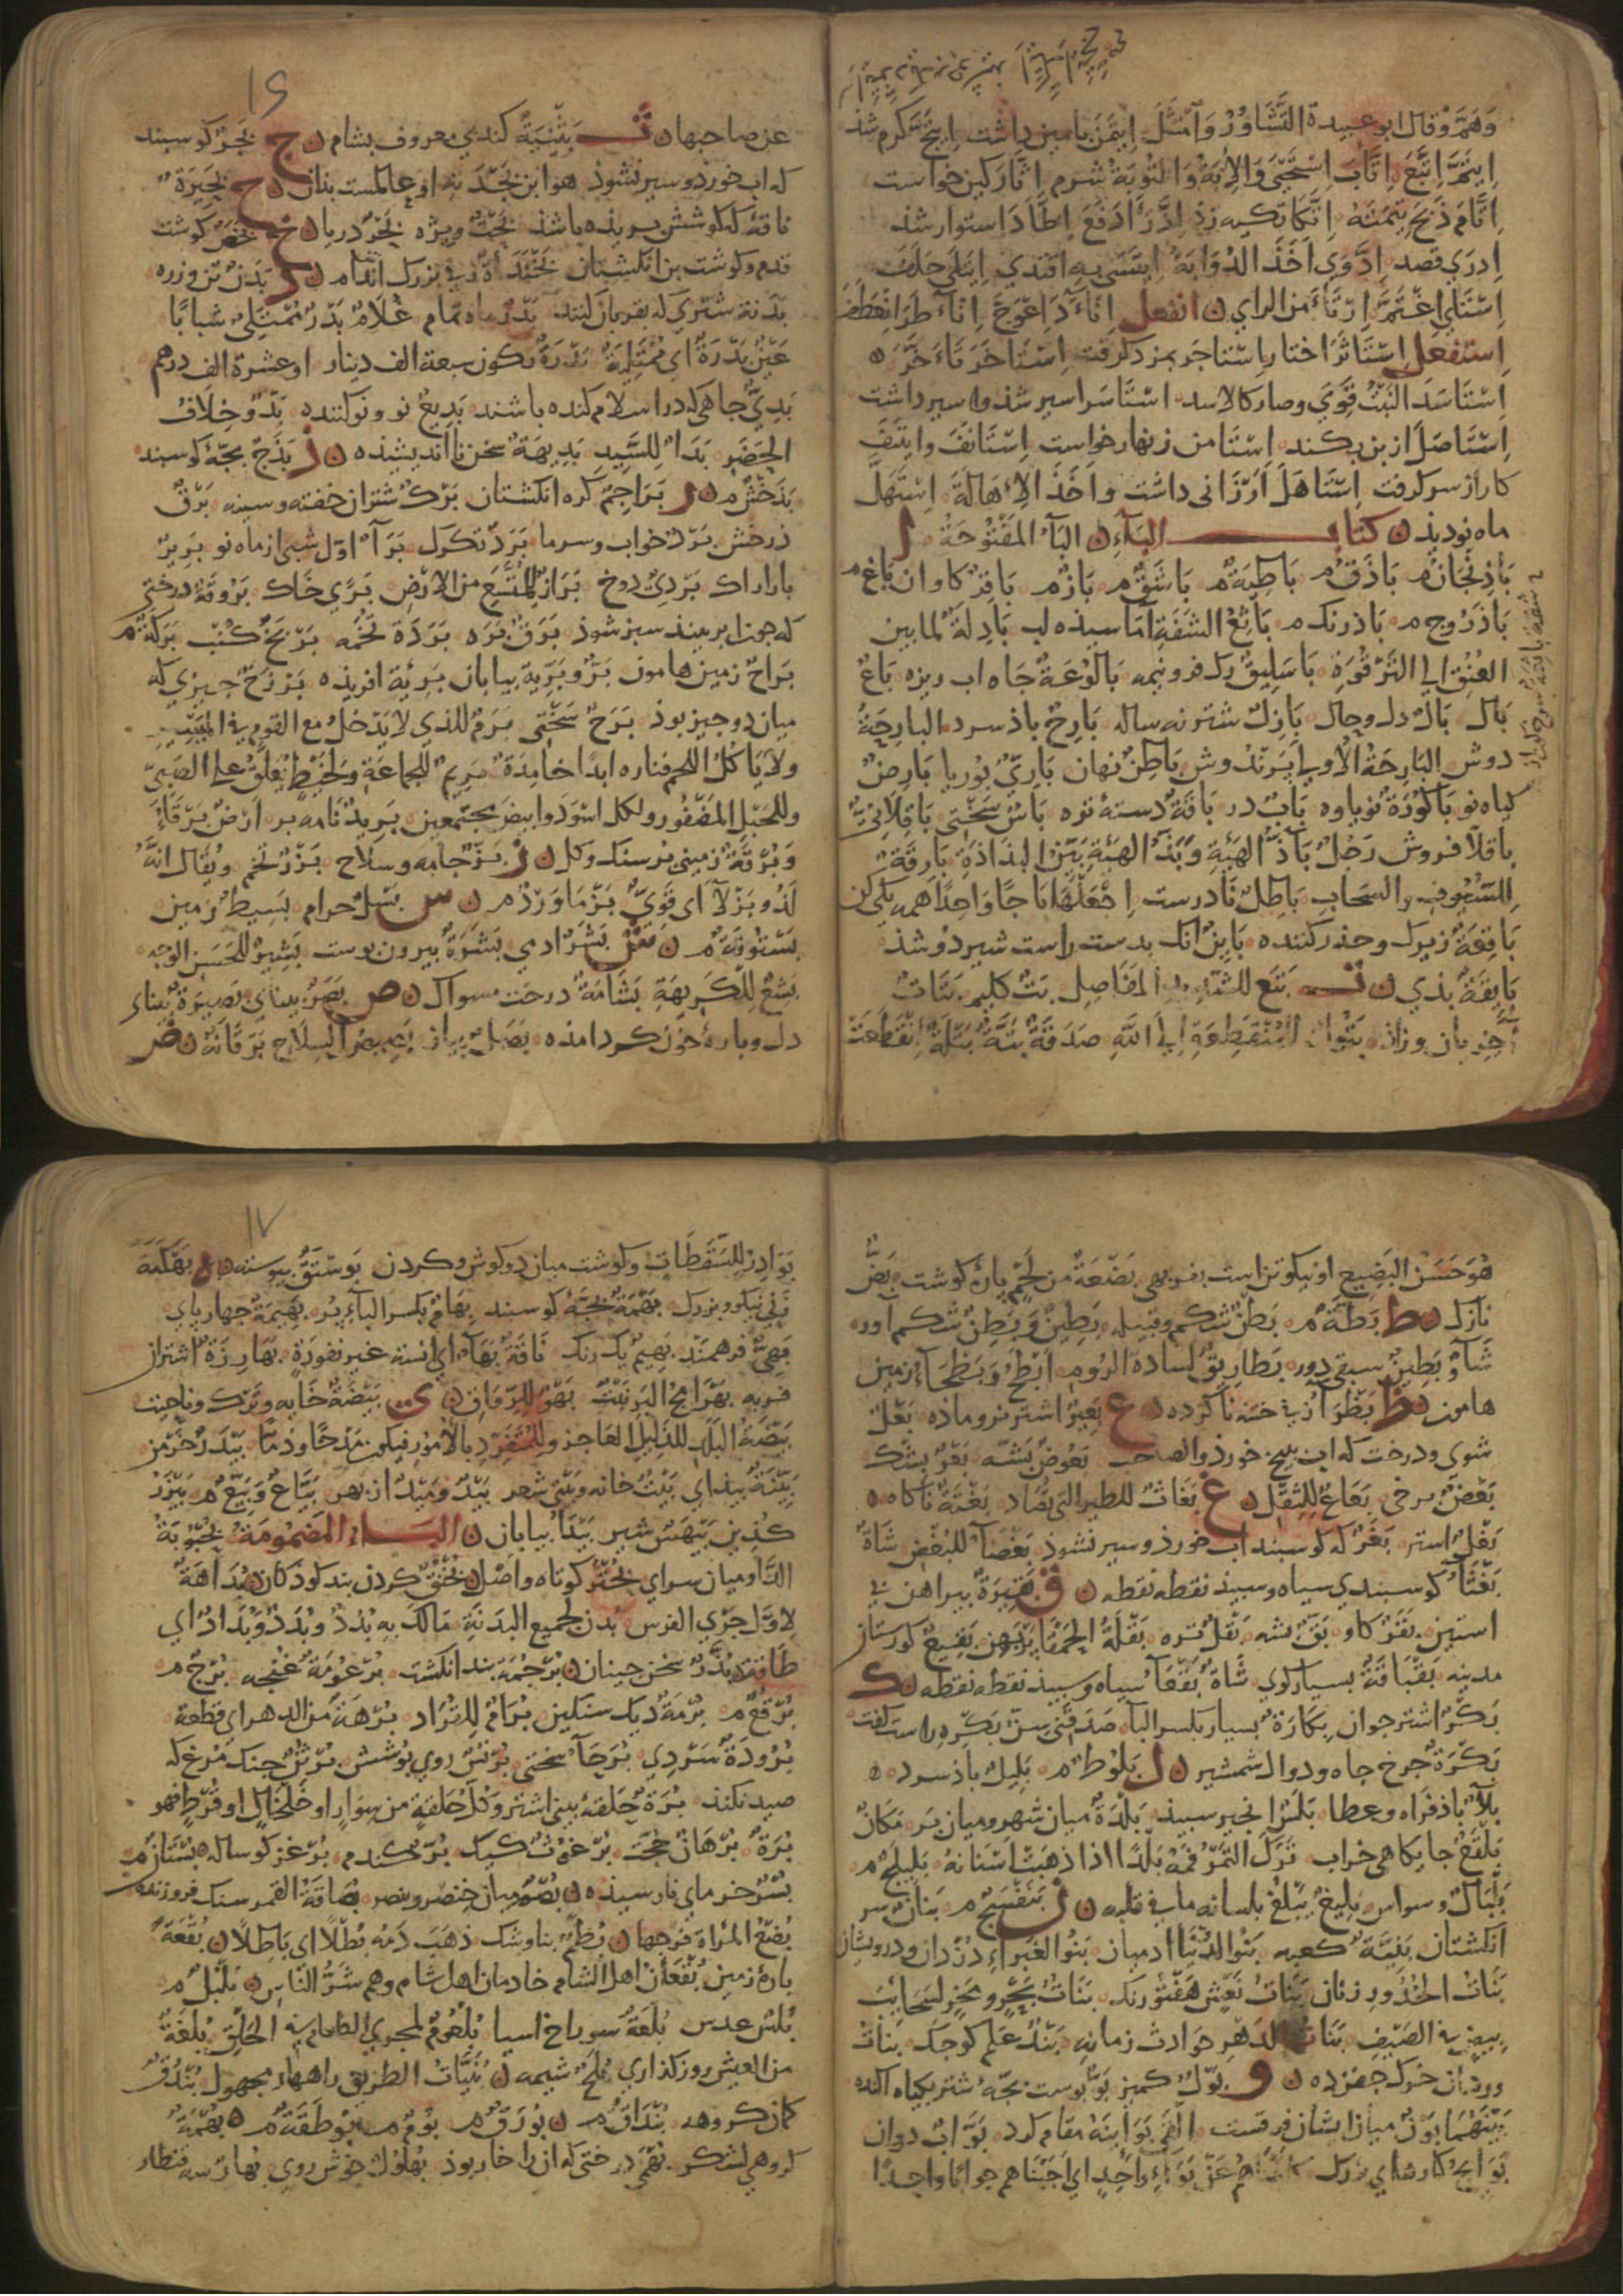 وَهَمَّ وَقال ابو عبيدة التَّشَاوُرُ وَامْتَثَلَ اِيتَمَنَ بامين داشت
اِيتَمَّ اِتَّبَعَ اِتَّابَ اِسْتَحْيَى وَالاِبَةُ وَالتُّوبَةُ شرم اِثَّارَ كين خواست
اِتَّامَ ذَبَحَ تِيْمَتَهُ اِتَّكَا تكيه زذ اِدَّرَأَ دَفَعَ اِطَّادَ استوار شذ
اِدَرَى قصد اِدَّوَى اَخَذَ الدُّوَايَةَ اِيتَسَى بِهِ اقتدى اِيتَلَى حلف
من الراي ن انفعل اِنْآدَ اِعْوَجَّ اِنْآطَرَ انعطف
استفعل اِسْتَاثَرَ اختار اِسْتَاجَرَ بمزد كرفت اِسْتَاخَرَ تَاَخَّرَ ه
اِسْتَاسَدَ النَّبْتُ قَوِىَ وصار كالاسد اسْتَاسَرَ اسير شذ و اسير داشت
اِسْتَاصَلَ از بن بكند اِسْتَامن زنهار خواست اِسْتَانَفَ وايتنف
كار از سر كرفت اِسْتَاهَلَ اَرْزَانى داشت واَخَذَ الاِهَالَةَ اِسْتَهَلَّ
ماه نو ديذ ن كتاب الباء ن الباء المَفْتُوحَةُ ا
بَاذِنْجَانٌ م بَاذَقٌ م بَاطِيَةٌ م بَاشَقٌ م بَازٌ م بَاقِرٌ كاوان بَاغ م
بَاذَرُوج م بَاذرنك م بَاثِعُ الشفَةِ آماسيذه لب بَادِلَةٌ لما بين
العُنُق الى التَّرْقُوَةِ بَاسَلِيقٌ رك فرو نيمه بَالُوعَةٌ جَاه اب ريزه بَاعٌ
بال بَالٌ دل وحال بَازِلٌ شتر نه ساله بَارِحٌ باذ سرد البارِحَةُ
دوش البَارِحَةُ الاُولى پَرَنْدوش بَاطِنٌ نهان بَارِىٌّ بُوريا بَارِضٌ
كياه نو بَاكُورَةٌ نوباوه بَابٌ در بَاقَةٌ دستهٔ تره بَاسٌ سختى بَاقِلانِىٌّ
باقلا فروش رَجُلٌ بَاذُّ الهَيْئَةِ وَبَذُّ الهَيْئَةِ بَيِّنُ البذاذَةِ بَارِقَةٌ
لِلسُّيُوفِ والسَّحَاب بَاطِلٌ نَادرست اِجْعَلْهَا بَاجًا وَاحِدًا همه يكى كن
بَاقِعَةٌ زيرك وحذر كننده بَايِنٌ انك بدست راست شير دوشذ
بَايِقَةٌ بذى ن ت بَتِعٌ للشديد المفاصل بَتٌّ كليم بَتَاتٌ
المُنْقَطِعَةِ الى الله صَدَقَةٌ بَتَّةٌ بَتْلَةٌ اِنْقَطَعَتْ
١٦
عن صاحبها ن ث بَثْنِيَّةٌ كندم معروف بشام ن ج بَجَرٌ كوسبند
كه اب خورد و سير نشوذ هو ابن بَجْدَتِهَا او عالمست بذان ن ح بَحِيرَةٌ
ناقهٔ كه كوشش بريذه باشذ بَحْتٌ ويژه بَحْرٌ دريا ن خ بَخَصٌ كوشت
قدم و كوشت بن انكشتان بَخَنْدَاةٌ زنى بزرك اندام ن د بَدَنٌ تن و زره
بَدَنَةٌ شترى كه بقربان كنند بَدْرٌ ماه تمام غُلامٌ بَدْرٌ مُمْتَلِئٌ شبابًا
عَيْنٌ بَدْرَةٌ اى مُمْتَلِئَةٌ بَدْرَةٌ تكون سبعة الف دينار او عشرة الف درهم
بَدِىٌّ جاهى كه در اسلام كنده باشند بَدِيعٌ نو و نو كننده بَدْوٌ خِلافُ
الحَضَرِ بَدْءٌ لِلسَّيِّدِ بَدِيهَةٌ سخن ناانديشيذه ن ذ بَذَجٌ بچهٔ كوسبند
بَذَخْشٌ م ن ر بَرَاجِمُ كره انكشتان بَرْكٌ شتران خفته وسينه بَرْقٌ
درخش بَرْدٌ خواب وسرما بَرَدٌ تكرك بَرَآءٌ اوّل شبى از ماه نو بَرِيرٌ
باراراك بَرْدِىٌّ دوخ بَرَازٌ لِلمُتَّسَعِ من الارْضِ بَرًى خاك بَرْوَقَةٌ درختى
كه چون ابر بيند سبز شوذ بَرَقٌ بَرَه بَرَدَةٌ تخمه بَرْبَخٌ كُنْب بَرَكَةٌ م
بَرَاحٌ زمين هامون بَرٌّ وبَرِّيَّةٌ بيابان بَرِيَّةٌ افريذه بَرْزَخٌ چيزى كه
ميان دو چيز بوذ بَرَحٌ سَخْتى بَرَمٌ للذى لا يَدْخلُ مع القوم فى المَيْسِر
ولا يَاكُلُ اللحم فناره ابدًا خامِدَةٌ بَرِيمٌ للجماعَةِ ولِخَيْطٍ يُعَلَّقُ على الصَّبِىّ
وللحَبْلِ المَضْفُورِ ولكل اسْوَدَ وابيض مجتمعين بَرِيدٌ نامه بر ارضٌ بَرْقَاءُ
وَبُرْقَةٌ زمينى برسنك وكل ن ز بَزٌّ جامه وسلاح بَزْرٌ تخم ويُقَال انّهُ
لَذُو بَزْلَآءَ اى قَوِىٌّ بَزْمَاوَرْدٌ م ن س بَسْلٌ حرام بَسِيطٌ زمين
بَسْتُوقَةٌ م ن ش بَشَرٌ ادمى بَشَرَةٌ بيرون پوست بَشِيرٌ للحَسَنِ الوجه
بَشِعٌ لِلكَرِيهَةِ بَشَامَةٌ درخت مسواك ن ص بَصَرٌ بينايى بَصِيرَةٌ بيناى
دل وبارهٔ خون كرد امذه بَصَلٌ پياز بَصِيصُ السِلاح بَرَقَانُهُ ن ض
هُوَ حَسَنُ البَضِيعِ او نيكو تن است بَضْعَةٌ من لَحْمٍ پارهٔ كوشت بَضٌّ
نازك ن ط بَطَّةٌ م بَطْنٌ شكم وقبيله بَطِينٌ وَبَطِنٌ شكم اور
شَاْوٌ بَطِينٌ سبقى دور بَطارِيقُ لسادة الروم ابْطَحُ وَبَطْحَاءُ زمين
هامون ن ظ بَظْرَآءُ زنى ختنه ناكرده ن ع بَعِيرٌ اشتر نر وماذه بَعْلٌ
شوى ودرخت كه اب ببيخ خورذ والصاحب بَعُوضٌ پشه بَعْرٌ بشك
بَعْضٌ برخى بَعَاعٌ لِلثِقْل ن غ بَغَاثٌ للطير التى تُصَاد بَغْتَةً ناكاه ه
بَغْلٌ استر بَغَرٌ كه كوسبند اب خورذ وسير نشوذ بَغْضَآءُ للبُغْض شاةٌ
بَغْثَآءُ كوسبندى سياه وسبيذ نقطه نقطه ن ق بَقِيرَةٌ پيراهن بى
استين بَقَرٌ كاو بَقٌّ پشه بَقْلٌ تره بَقْلَةُ الحَمْقَآءِ پرپهن بَقِيعٌ كورستان
مدينه بَقْبَاقَةٌ بسيار كوى شاةٌ بَقْعَآءُ سياه وسبيذ نقطه نقطه ن ك
بَكْرٌ اشتر جوان بِكَارَةٌ بسيار بكسر البا صَدَقَنِى سِنَّ بَكْرِهِ راست كفت
بَكْرَةٌ چرخ چاه ودوال شمشير ن ل بَلُوطٌ م بَلِيلٌ باذ سرد ه
بَلآءٌ باذ فراه وعطا بَلَسٌ انجير سبيذ بَلْدَةٌ ميان شهر وميان بَر مَكَانٌ
بَلْقَعٌ جايكاهى خراب تَرَكَ التَّمْرُ فَمَهُ بَلَدًا اذا ذهَبَتْ اَسْنَانُهُ بَلِيلَجٌ م
بَلْبَالٌ وسواس بَلِيغٌ يَبْلُغُ بلسانه ما فى قلبه ن ن بَنَفْسَجٌ م بَنَانٌ سر
انكشتان بَنِيَّةٌ كعبه بَنُو الدُّنْيَا ادميان بَنُو الغَبْرَاءِ دزدان ودرويشان
بَنَاتُ الخُدُورِ زنان بَنَاتُ نَعْشٍ هَفْتُورنك بَنَاتُ بَحْرٍ ومَخْرٍ لسَحَائِبَ
بِيضٍ فى الصَيْفِ بَنَاتُ الدَهْرِ حوادث زمانه بَنْدٌ عَلَم كوچك بَنَاتُ
وردان خرك چغزده ن و بَوْلٌ كميز بَوٌّ پوست بچهٔ شتر بكياه آكنده
بَيْنَهُمَا بَوْنٌ ميان ايشان فرقست اَلْقَى بَوَانِيَهُ مقام كرد بَوَّابٌ دروان
بَوَايِجُ كارهاى بزرك عَنْ بَوَاءٍ وَاحِدٍ اى اَجَبْنَاهم جوابًا واحدًا
١٧
بَوَادِرُ لِلسَقَطَاتِ وكوشت ميان دوكوش وكردن ن ه بَهْكَنَةٌ
زنى نيكو وبزرك بَهْمَةٌ بچهٔ كوسبند بِهَامٌ بكسر البآء بُر بَهِيمَةٌ چهارپاى
بَهِىٌّ فرهمند بَهِيمٌ يك رنك نَاقَةٌ بَهَآءٌ اى انسة غير نفورَةٍ بَهازِرَةٌ اشتران
فربه بَهْرَامَجُ البَرَنْتُ بَهْوٌ لِلرِّوَاق ن ى بَيْضَةٌ خَايه وتَرْك وناحيت
بَيْضَةُ البَلَد لِلذَّلِيل العَاجز ولِلْمُنْفَرِدِ بالاُمُور فيكون مَدْحًا وذمًّا بَيْدَرٌ خَرْمَن
بَيِّنَةٌ پيذاى بَيْتٌ خانه وبيتى شعر بَيْدَ ومَيْدَ از بهر بَيَّاعٌ وَبَيِّعٌ م
بَيْهَسٌ شير بَيْدَآءُ بيابان ن البَاء المَضْمُومَةُ بُحْبُوحَةُ
الدَّارِ ميان سراى بُحْتُرٌ كوتاه
لاوّل جَرْىِ الفرس بُدْنٌ لجميع البَدَنَةِ مَالَكَ بِهِ بُدَّةٌ وَبُدَدٌ اى
طَاقَةٌ بُذُرٌ سخن چينان ن بُرْجُمَةٌ بند انكشت بُرْعُومَةٌ غنچه بُرْجٌ م
بُرْقُعٌ م بُرْمَةٌ ديك سنكين بُرَامٌ لِلقُرَاد بُرْهَةٌ من الدهر اى قطعة
بُرُودَةٌ سَرْدى بُرَحَآءُ سختى بُرْنُسٌ روى پوشش بُرْثُنٌ چنك مرغ كه
صيد نكند بُرَةٌ حلقهٔ بينى اشتر وكُلُّ حَلْقَةٍ من سِوَارٍ او خَلْخَالٍ او قُرْطٍ فهو
بُرَةٌ بُرْهَانٌ حجت بُرْغُوثٌ كيك بُرٌّ كندم بُرْغزٌ كوساله بُسْتَانٌ م
بُسْرٌ خرماى نارسيذه ن بُصْمٌ ميان خنصر وبنصر بُصَاقَةُ القمر سنك فروزنده
بُضْعُ المرْاَة فَرْجها ن بُطْمٌ بناوشك ذهَبَ دَمُهُ بُطْلًا اى بَاطِلًا ن بُقْعَةٌ
پارهٔ زمين بُقْعَانُ اهل الشام خادمان اهل شام وهم شَرُّ النَّاسِ ن بُلْبُلٌ م
بُلُسٌ عدس بُلْعَةٌ سوراخ اسيا بُلْعُومٌ لمجرى الطعام فى الحَلْقِ بُلْغَةٌ
من العيش روزكذارى بُنَيَّاتُ الطريق راههاء مجهول بُنْدُقٌ
كمان كروهه ن بُورَقٌ م بُومٌ م بُوطَقَةٌ م ه بُهْمَةٌ
كروهى لشكر بُهْمَى درختى كه ان را خار بوذ بُهْلُولٌ خوش روى بُهَارٌ سه قنطار